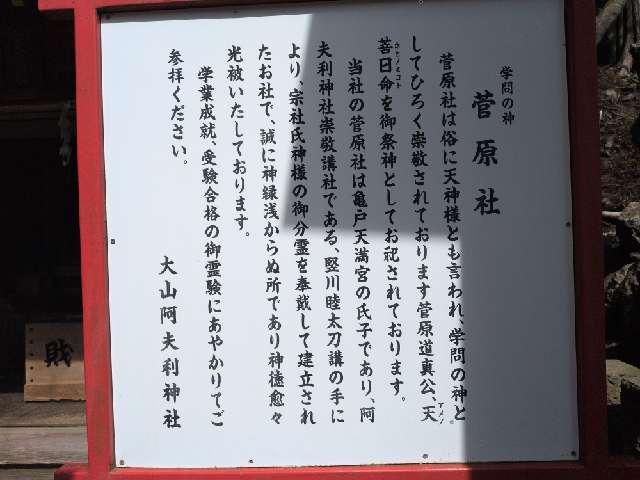 学問の神
菅原社
菅原社は俗に天神様とも言われ、学問の神と
してひろく崇敬されております菅原道真公、天
アメノ
菩日命を御祭神としてお祀されております。
ホヒノミコト
当社の菅原社は亀戸天満宮の氏子であり、阿
夫利神社崇敬講社である、竪川睦太刀講の手に
より、宗社氏神様の御分霊を奉戴して建立され
たお社で、誠に神縁浅からぬ所であり神徳愈々
光被いたしております。
学業成就、受験合格の御霊験にあやかりてご
参拝ください。
大山阿夫利神社
財